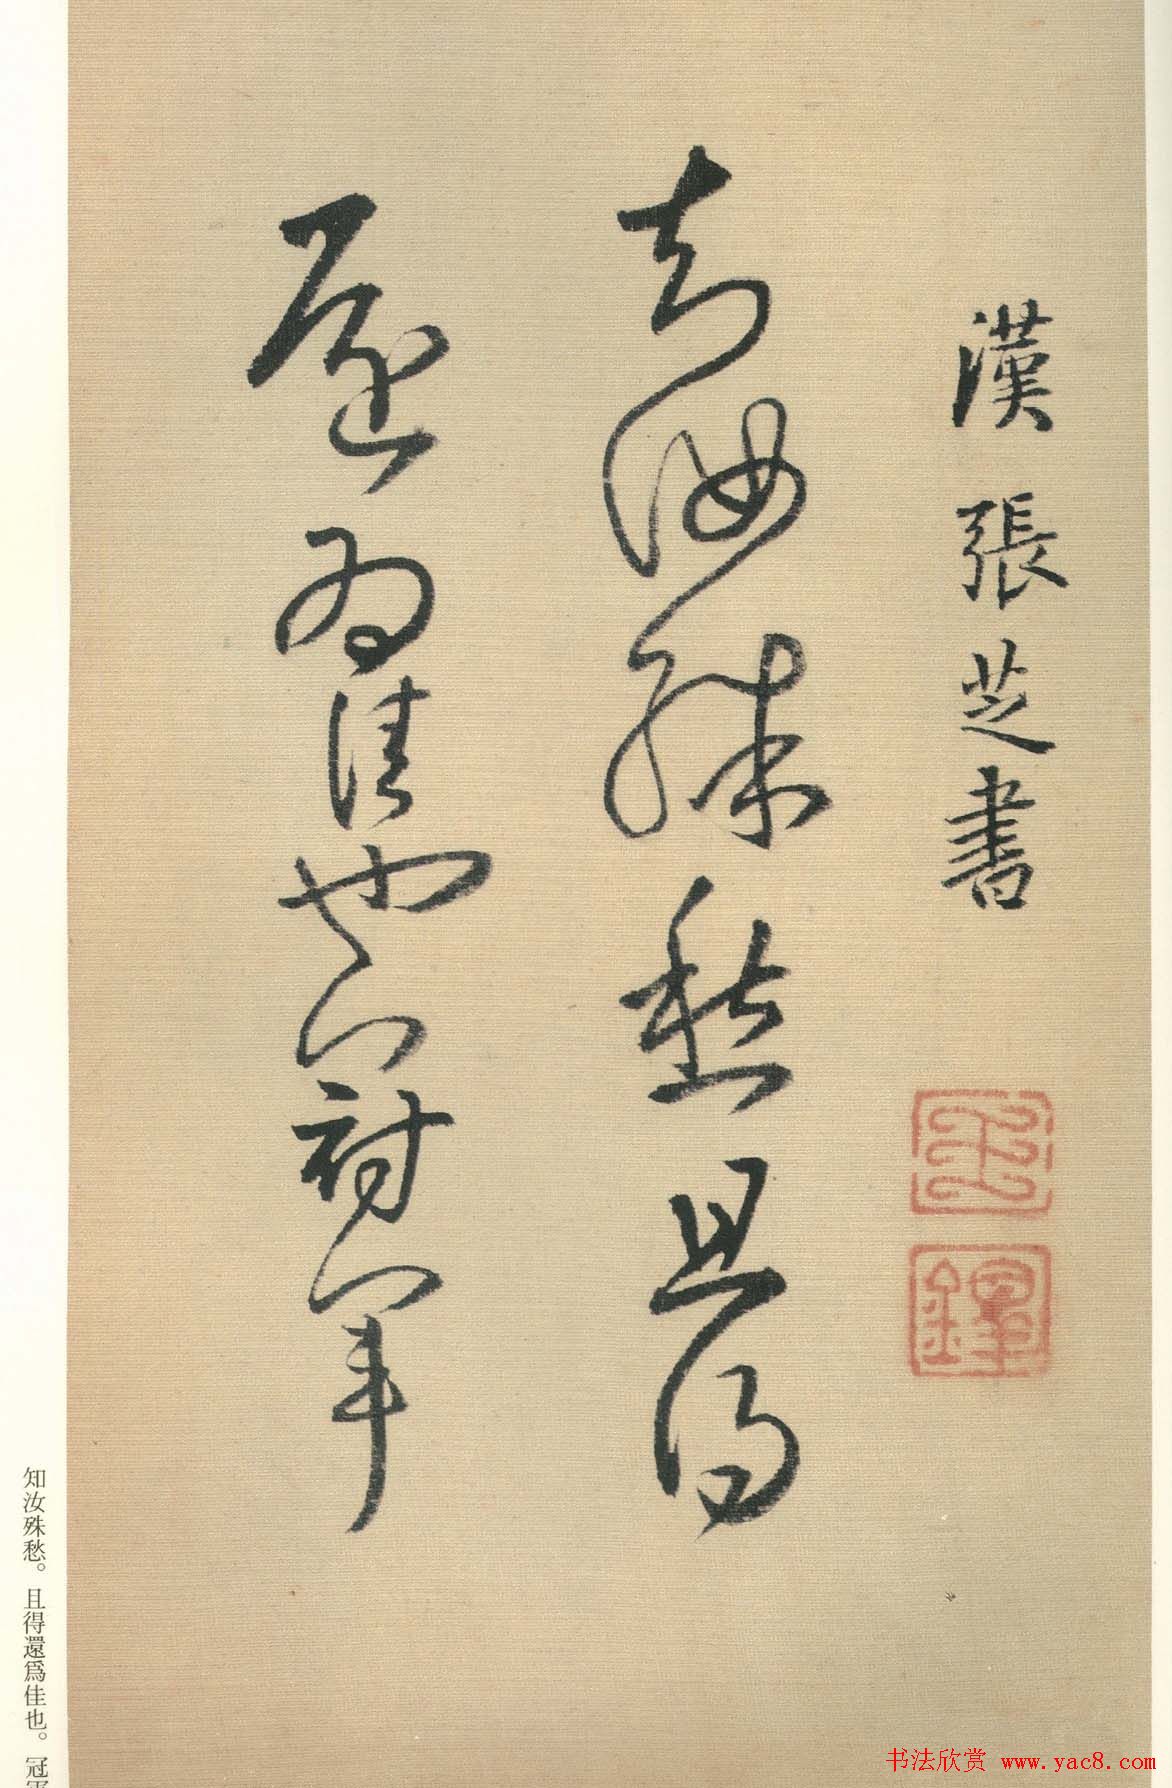 漢張芝書
王
鐸
知汝殊愁且得
還為佳也冠軍
知汝殊愁。且得還爲佳也。冠軍
书法欣赏 www.yac8.com